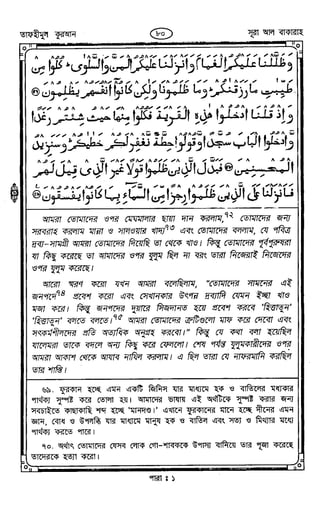 তাফহীমুল কুরআন
৮০
সূরা আল বাকারাহ
وَظَلَّلْنَا عَلَيْكُمُ الْغَمَامَ وَأَنْزَلْنَا عَلَيْكُمُ الْمَنَّ وَالسَّلْوٰى ۖ كُلُوْا مِنْ
طَيِّبٰتِ مَا رَزَقْنٰكُمْ ۖ وَمَا ظَلَمُوْنَا وَلٰكِنْ كَانُوْٓا اَنْفُسَهُمْ يَظْلِمُوْنَ
وَاِذْ قُلْنَا ادْخُلُوْا هٰذِهِ الْقَرْيَةَ فَكُلُوْا مِنْهَا حَيْثُ شِئْتُمْ رَغَدًا
وَّادْخُلُوا الْبَابَ سُجَّدًا وَّقُوْلُوْا حِطَّةٌ نَّغْفِرْ لَكُمْ خَطٰيٰكُمْ ۖ وَسَنَزِيْدُ
الْمُحْسِنِيْنَ فَبَدَّلَ الَّذِيْنَ ظَلَمُوْا قَوْلًا غَيْرَ الَّذِيْ قِيْلَ لَهُمْ
فَاَنْزَلْنَا عَلَى الَّذِيْنَ ظَلَمُوْا رِجْزًا مِّنَ السَّمَآءِ بِمَا كَانُوْا يَفْسُقُوْنَ
আমরা তোমাদের ওপর মেঘমালার ছায়া দান করলাম,৭২ তোমাদের জন্য
সরবরাহ করলাম মান্না ও সালওয়ার খাদ্য৭৩ এবং তোমাদের বললাম, যে পবিত্র
দ্রব্য-সামগ্রী আমরা তোমাদের দিয়েছি তা থেকে খাও। কিন্তু তোমাদের পূর্বপুরুষরা
যা কিছু করেছে তা আমাদের ওপর যুলুম ছিল না বরং তারা নিজেরাই নিজেদের
ওপর যুলুম করেছে।
আরো স্মরণ করো যখন আমরা বলেছিলাম, "তোমাদের সামনের এই
জনপদে৭৪ প্রবেশ করো এবং সেখানকার উৎপন্ন দ্রব্যাদি যেমন ইচ্ছা খাও
মজা করে। কিন্তু জনপদের দুয়ারে সিজদানত হয়ে প্রবেশ করবে 'হিত্তাতুন'
'হিত্তাতুন' বলতে বলতে।৭৫ আমরা তোমাদের ত্রুটিগুলো মাফ করে দেবো এবং
সৎকর্মশীলদের প্রতি অত্যধিক অনুগ্রহ করবো।" কিন্তু যে কথা বলা হয়েছিল
যালেমরা তাকে বদলে অন্য কিছু করে ফেললো। শেষ পর্যন্ত যুলুমকারীদের ওপর
আমরা আকাশ থেকে আযাব নাযিল করলাম। এ ছিল তারা যে নাফরমানি করছিল
তার শাস্তি।
৬৯. ফুরকান হচ্ছে এমন একটি জিনিস যার মাধ্যমে হক ও বাতিলের মধ্যকার
পার্থক্য সুস্পষ্ট করে তোলা হয়। আমাদের ভাষায় এই অর্থটিকে সুস্পষ্ট করার জন্য
সবচাইতে কাছাকাছি শব্দ হচ্ছে 'মানদণ্ড।' এখানে ফুরকানের মানে হচ্ছে দীনের এমন
জ্ঞান, বোধ ও উপলব্ধি যার মাধ্যমে মানুষ হক ও বাতিল এবং সত্য ও মিথ্যার মধ্যে
পার্থক্য করতে পারে।
৭০. অর্থাৎ তোমাদের যেসব লোক গো-শাবককে উপাস্য বানিয়ে তার পূজা করেছে
তাদেরকে হত্যা করো।
পারা : ১